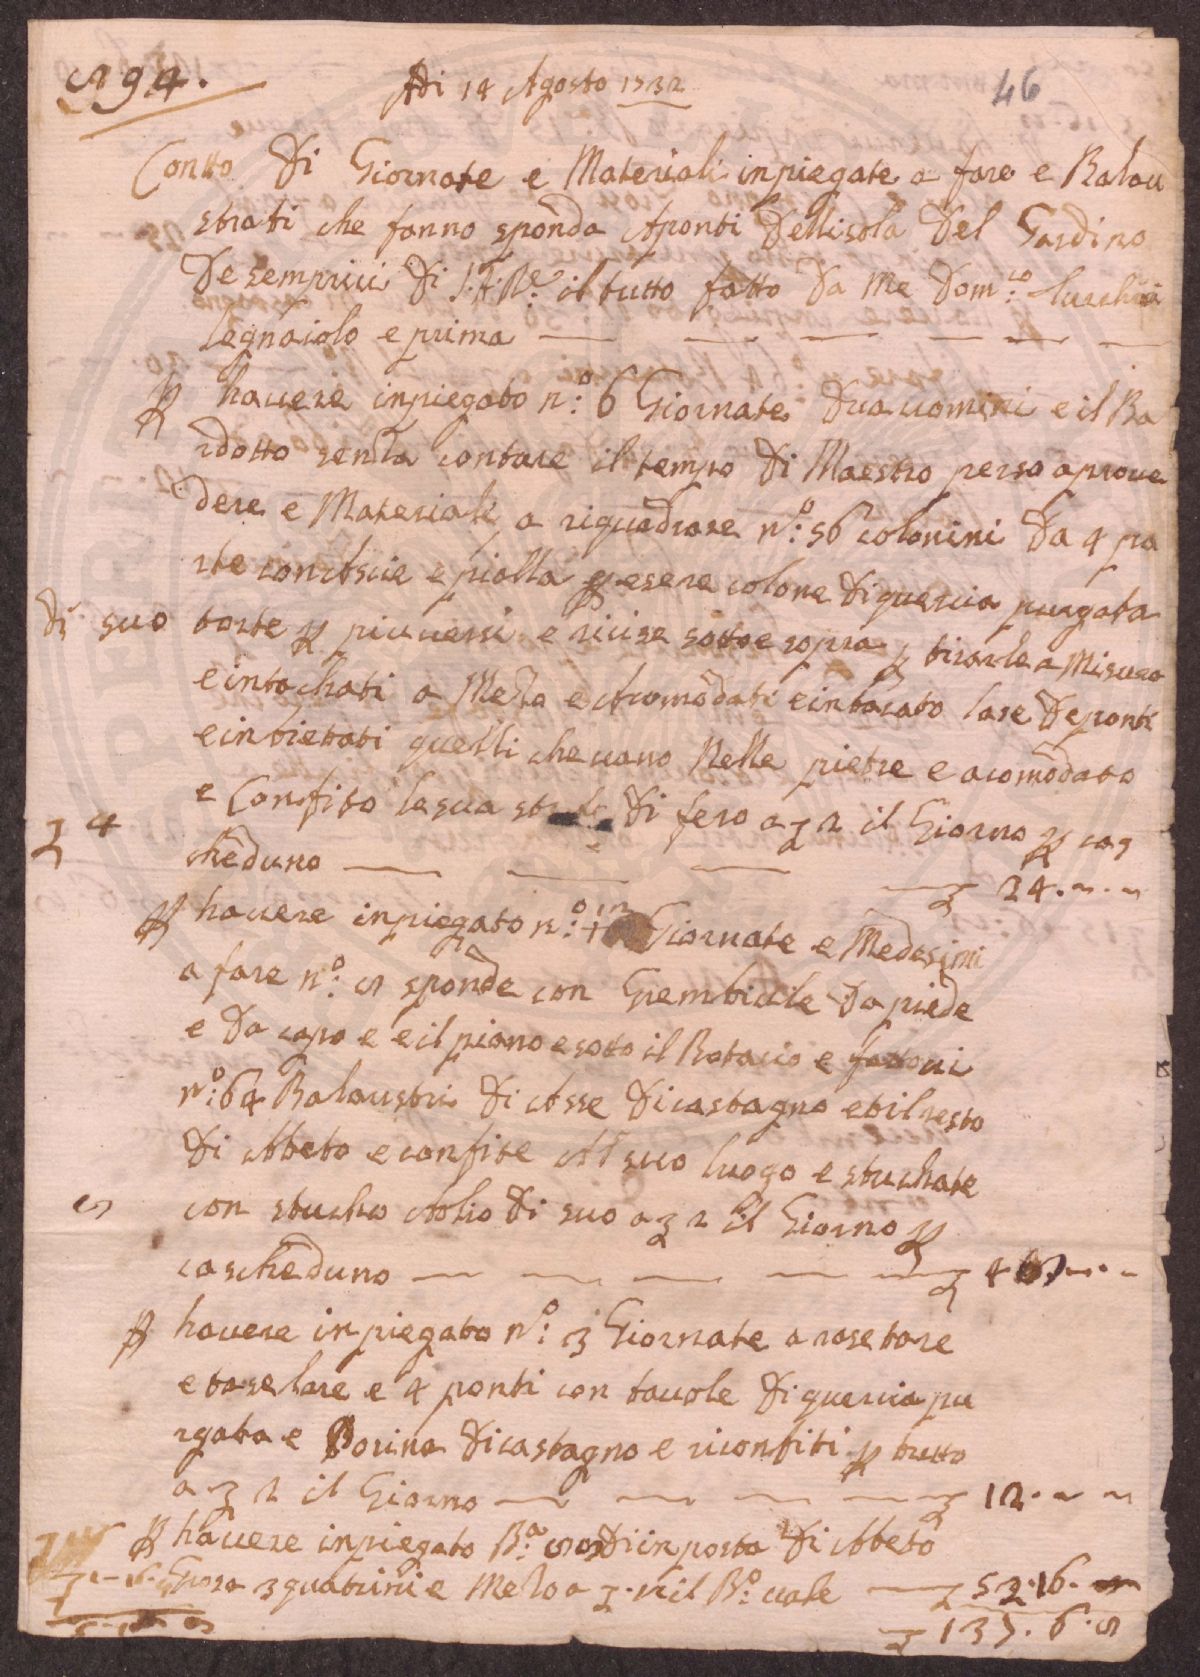 194.
Adi 14 Agosto 1732
46
Contto di Giornate e Materiali inpiegate a fare e Balau
strati che fanno sponda Aponti dellisola del Gardino
de sempricii di S.A.Re. il tutto fatto da Me Dom.co
legnaiolo e prima
P havere inpiegato n.o 6 Giornate dua uomini e il Ba
rdotto senza contare il tempo di Maestro perso aprove
dere e Materiali a riquadrare n.o 56 colonini da 4 pa
rte con Ascie e pialla p esere colone di quercia purgata
di suo
torte p piu versi e ricise sotto e sopra p tirarle a Misura
e intachati a Meza e Acomodati e intacato lase de ponti
e inbietati quelli che vano nelle pietre e acomodato
e Confito la sua di fero a 2 il Giorno p cas
4
cheduno 24.
P havere inpiegato n.o Giornate e Medesimi
a fare n.o sponde con Grembiale da piede
e da capo e e il piano e sotto il Batacio e
n.o 64 Balaustri di Asse di castagno et il resto
di Abeto e confite Al suo luogo e stuchate
con stucho Aolio di suo a 2 il Giorno p
cascheduno
P havere inpiegato n.o 3 Giornate a rasetare
e taselare e 4 ponti con tavole di quercia pu
rgata e Dorina di castagno e riconfiti p tutto
a 2 il Giorno 12.
P havere inpiegato B.a di inposta di Abeto
Grosa 3 quatrini e Mezo a il B.o vale 53.16.
137.6.